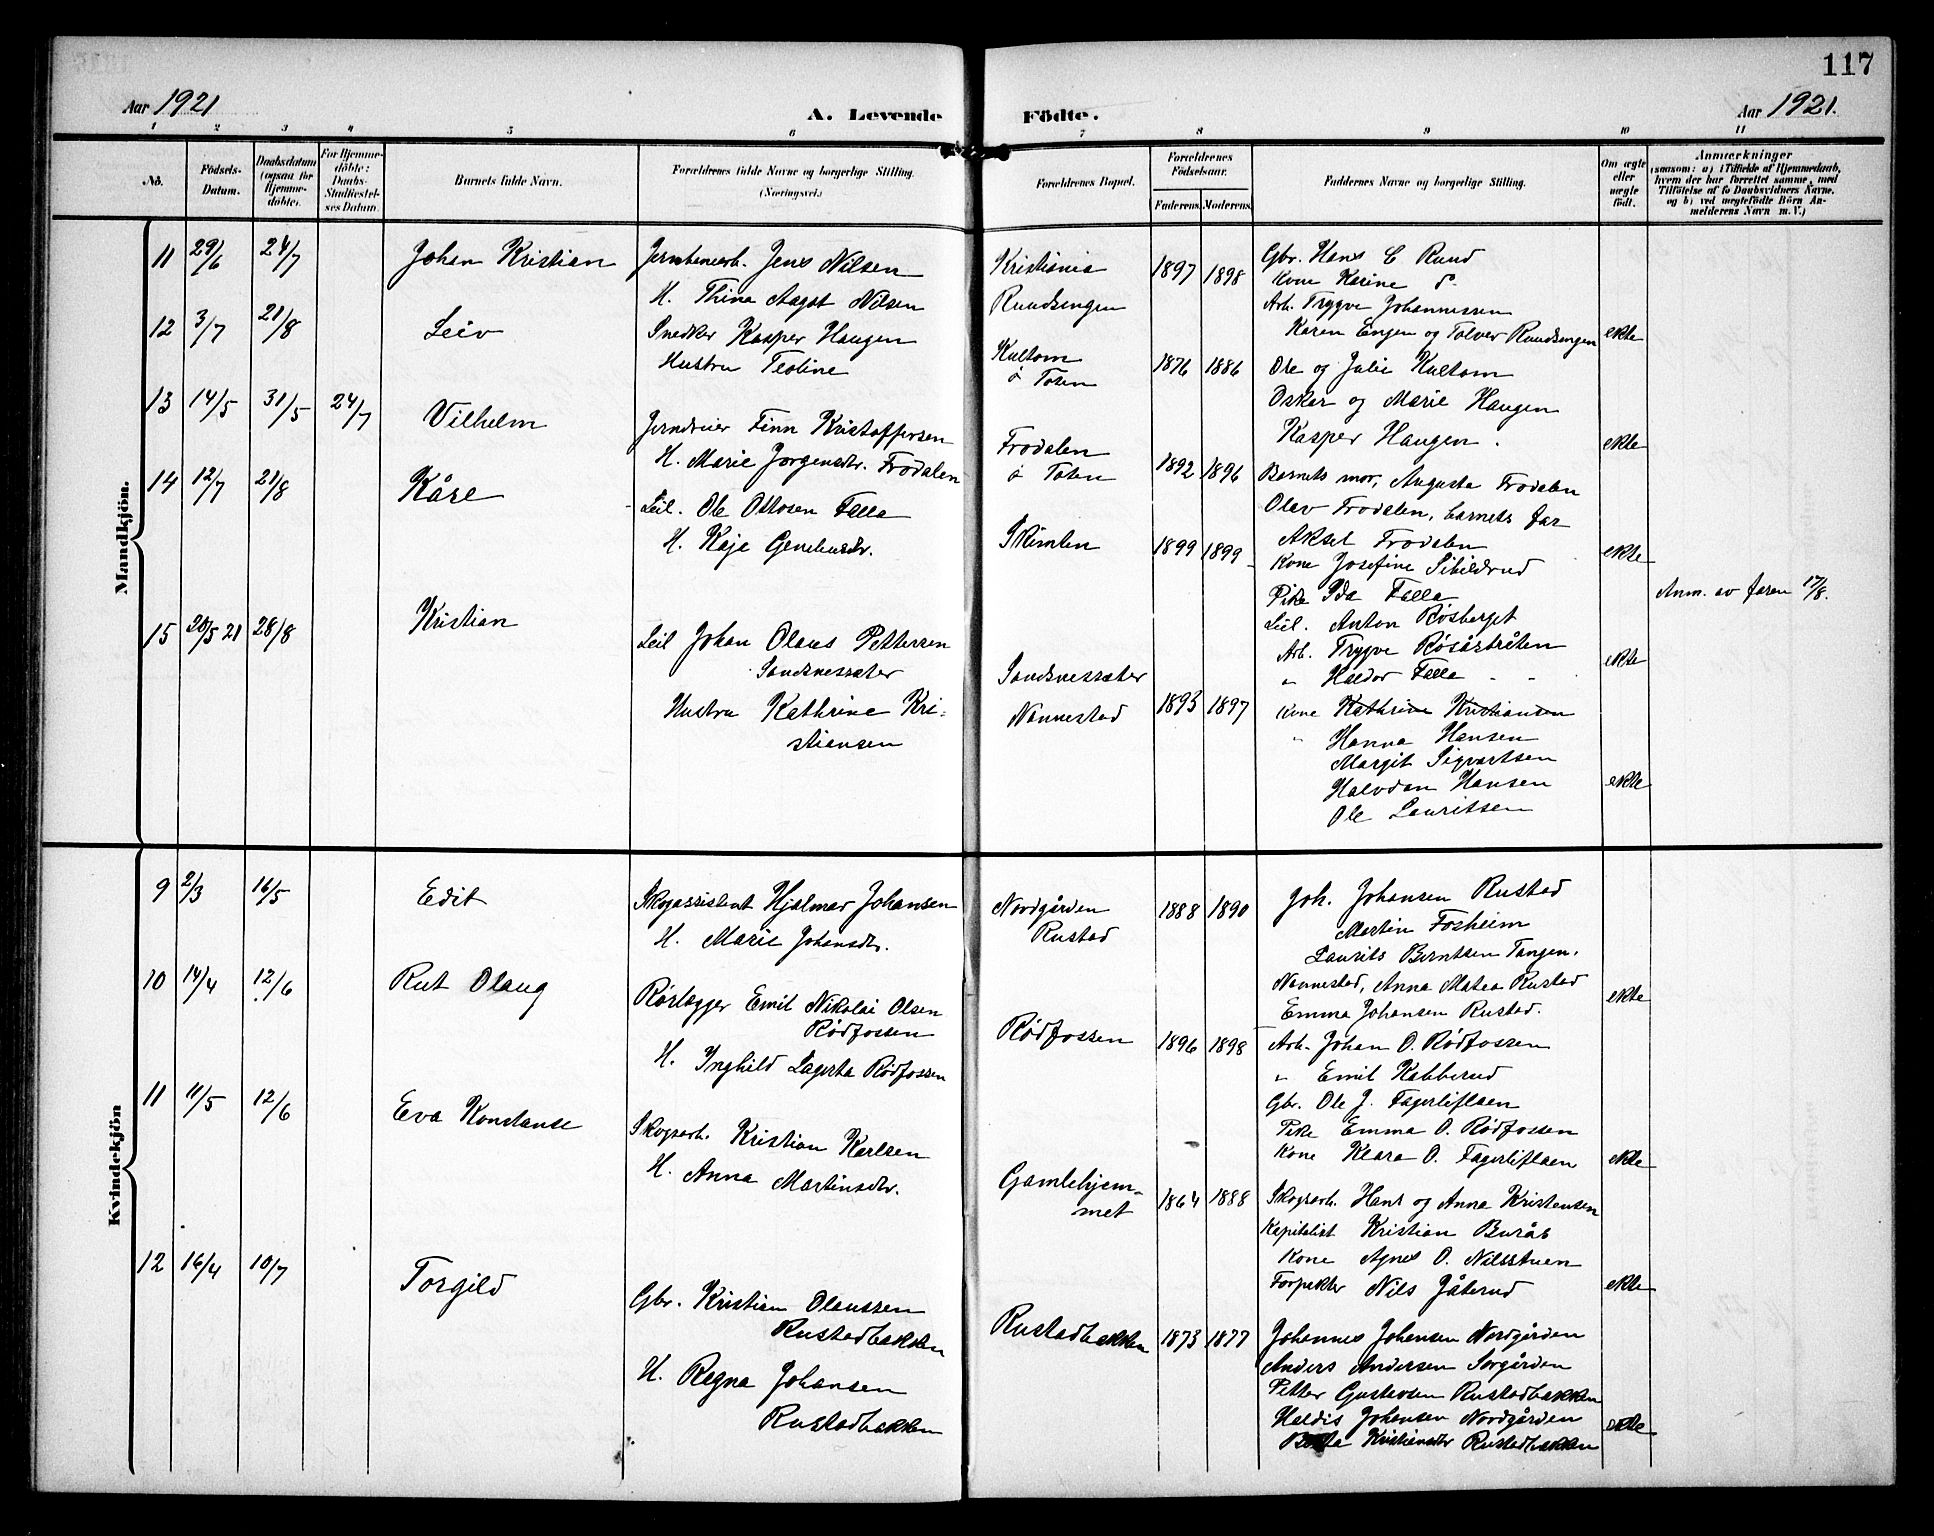 117
Aar 1921
A. Levende Födte.
Aar 1921.
1 2 3 4 5 6 7 8 9 10 11
No.
Födsels-Datum.
Daabsdatum (ogsaa for Hjemme-döbte).
For Hjemme-döbte: Daabs-Stadfæstel-ses Datum
Barnets fulde Navn.
Forældrenes fulde Navne og borgerlige Stilling. (Næringsvei.)
Forældrenes Bopæl.
Forældrenes Födselsaar.
Faderens. Moderens.
Faddernes Navne og borgerlige Stilling.
Om ægte eller uægte födt.
Anmærkninger
(saasom: a) i Tilfælde af Hjemmedaab, hvem der har forrettet samme, med Tilföielse af to Daabsvidners Navne. og b) ved uægtefödte Börn An-melderens Navn m. V.)
Mandkjön.
11 29/6 24/7 Johan Kristian
Jernbanearb. Jens Nilsen
H. Thina Aagot Nilsen
Kristiania
Rundsengen
1897 1898
Gbr. Hans C Rund
Kone Karine d°
Arb. Trygve Johannessen
Karen Engen og Tolver Rundsengen ekte
12 3/7 21/8 Leiv
Snedker Kasper Haugen
Hustru Teoline
Kultom
ø Toten
1876 1886
Ole og Julie Kultom
Oskar og Marie Haugen
Kasper Haugen. ekte
13 14/5 31/5 24/7 Vilhelm
Jerndreier Finn Kristoffersen
H. Marie Jørgensdtr. Frodalen
Frodalen
ø Toten
1892 1896
Barnets mor, Augusta Frodalen
Olav Frodalen, barnets far
Aksel Frodalen ekte
14 12/7 21/8 Kåre
Leil. Ole Ottosen Falla
H. Kaja
Skimlen
1899 1899
Kone Josefine Sibildrud
Pike Ida Falla
Leil. Anton Røsberget
Arb. Trygve Røsåsbråten
" Haldor Falla ekte
Anm. av faren 17/8.
15 28/5 21 28/8 Kristian
Leil Johan Olaus Pettersen
Sandsnessæter
Hustru Kathrine Kri-
stiansen
Sandsnessæter
Nannestad
1893 1897
Kone Kathrine Kristiansen
" Hanna Hansen
Margit Sigvartsen
Halvdan Hansen ekte
Ole Lauritsen
Kvindekjön
9 2/3 16/5 Edit
Skogassistent Hjalmar Johansen
H. Marie Johansdtr.
Nordgården
Rustad
1888 1890
Joh. Johansen Rustad
Martin Fosheim
Laurits Berntsen Tangen.
Nannestad, Anna Matea Rustad
Emma Johansen Rustad. ekte
10 14/4 12/6 Rut Olaug
Rørlegger Emil Nikolai Olsen
Rødfossen
H. Inghild Lagerta Rødfossen
Rødfossen
1896 1898
Arb. Johan O. Rødfossen
" Emil Kabberud
Gbr. Ole J. Fagerliflaen
Pike Emma O. Rødfossen
Kone Klara O. Fagerliflaen ekte
11 11/5 12/6 Eva Konstanse
Skogsarb. Kristian Karlsen
H. Anna Martinsdtr.
Gamlehjem-
met
1864 1888
Skogsarb. Hans og Anna Kristensen
Kapitalist Kristian Burås
Kone Agnes O. Nilsstuen
Forpakter Nils Jåterud ekte
12 16/4 10/7 Torgild
Gbr. Kristian Olaussen
Rustadbakken
H. Ragna Johansen
Rustadbakken
Rustadbakken
1873 1877
Johannes Johansen Nordgården
Anders Andersen Sorgården
Petter Gustavsen Rustadbakken
Haldis Johansen Nordgården ekte
Kristiansdtr Rustadbakken